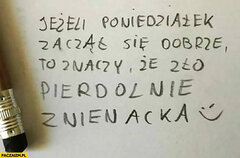 JEŻELI PONIEDZIAŁEK
ZACZĄŁ SIĘ DOBRZE,
TO ZNACZY, ŻE ZŁO
PIERDOLNIE
ZNIENACKA
FACEPALM.PL